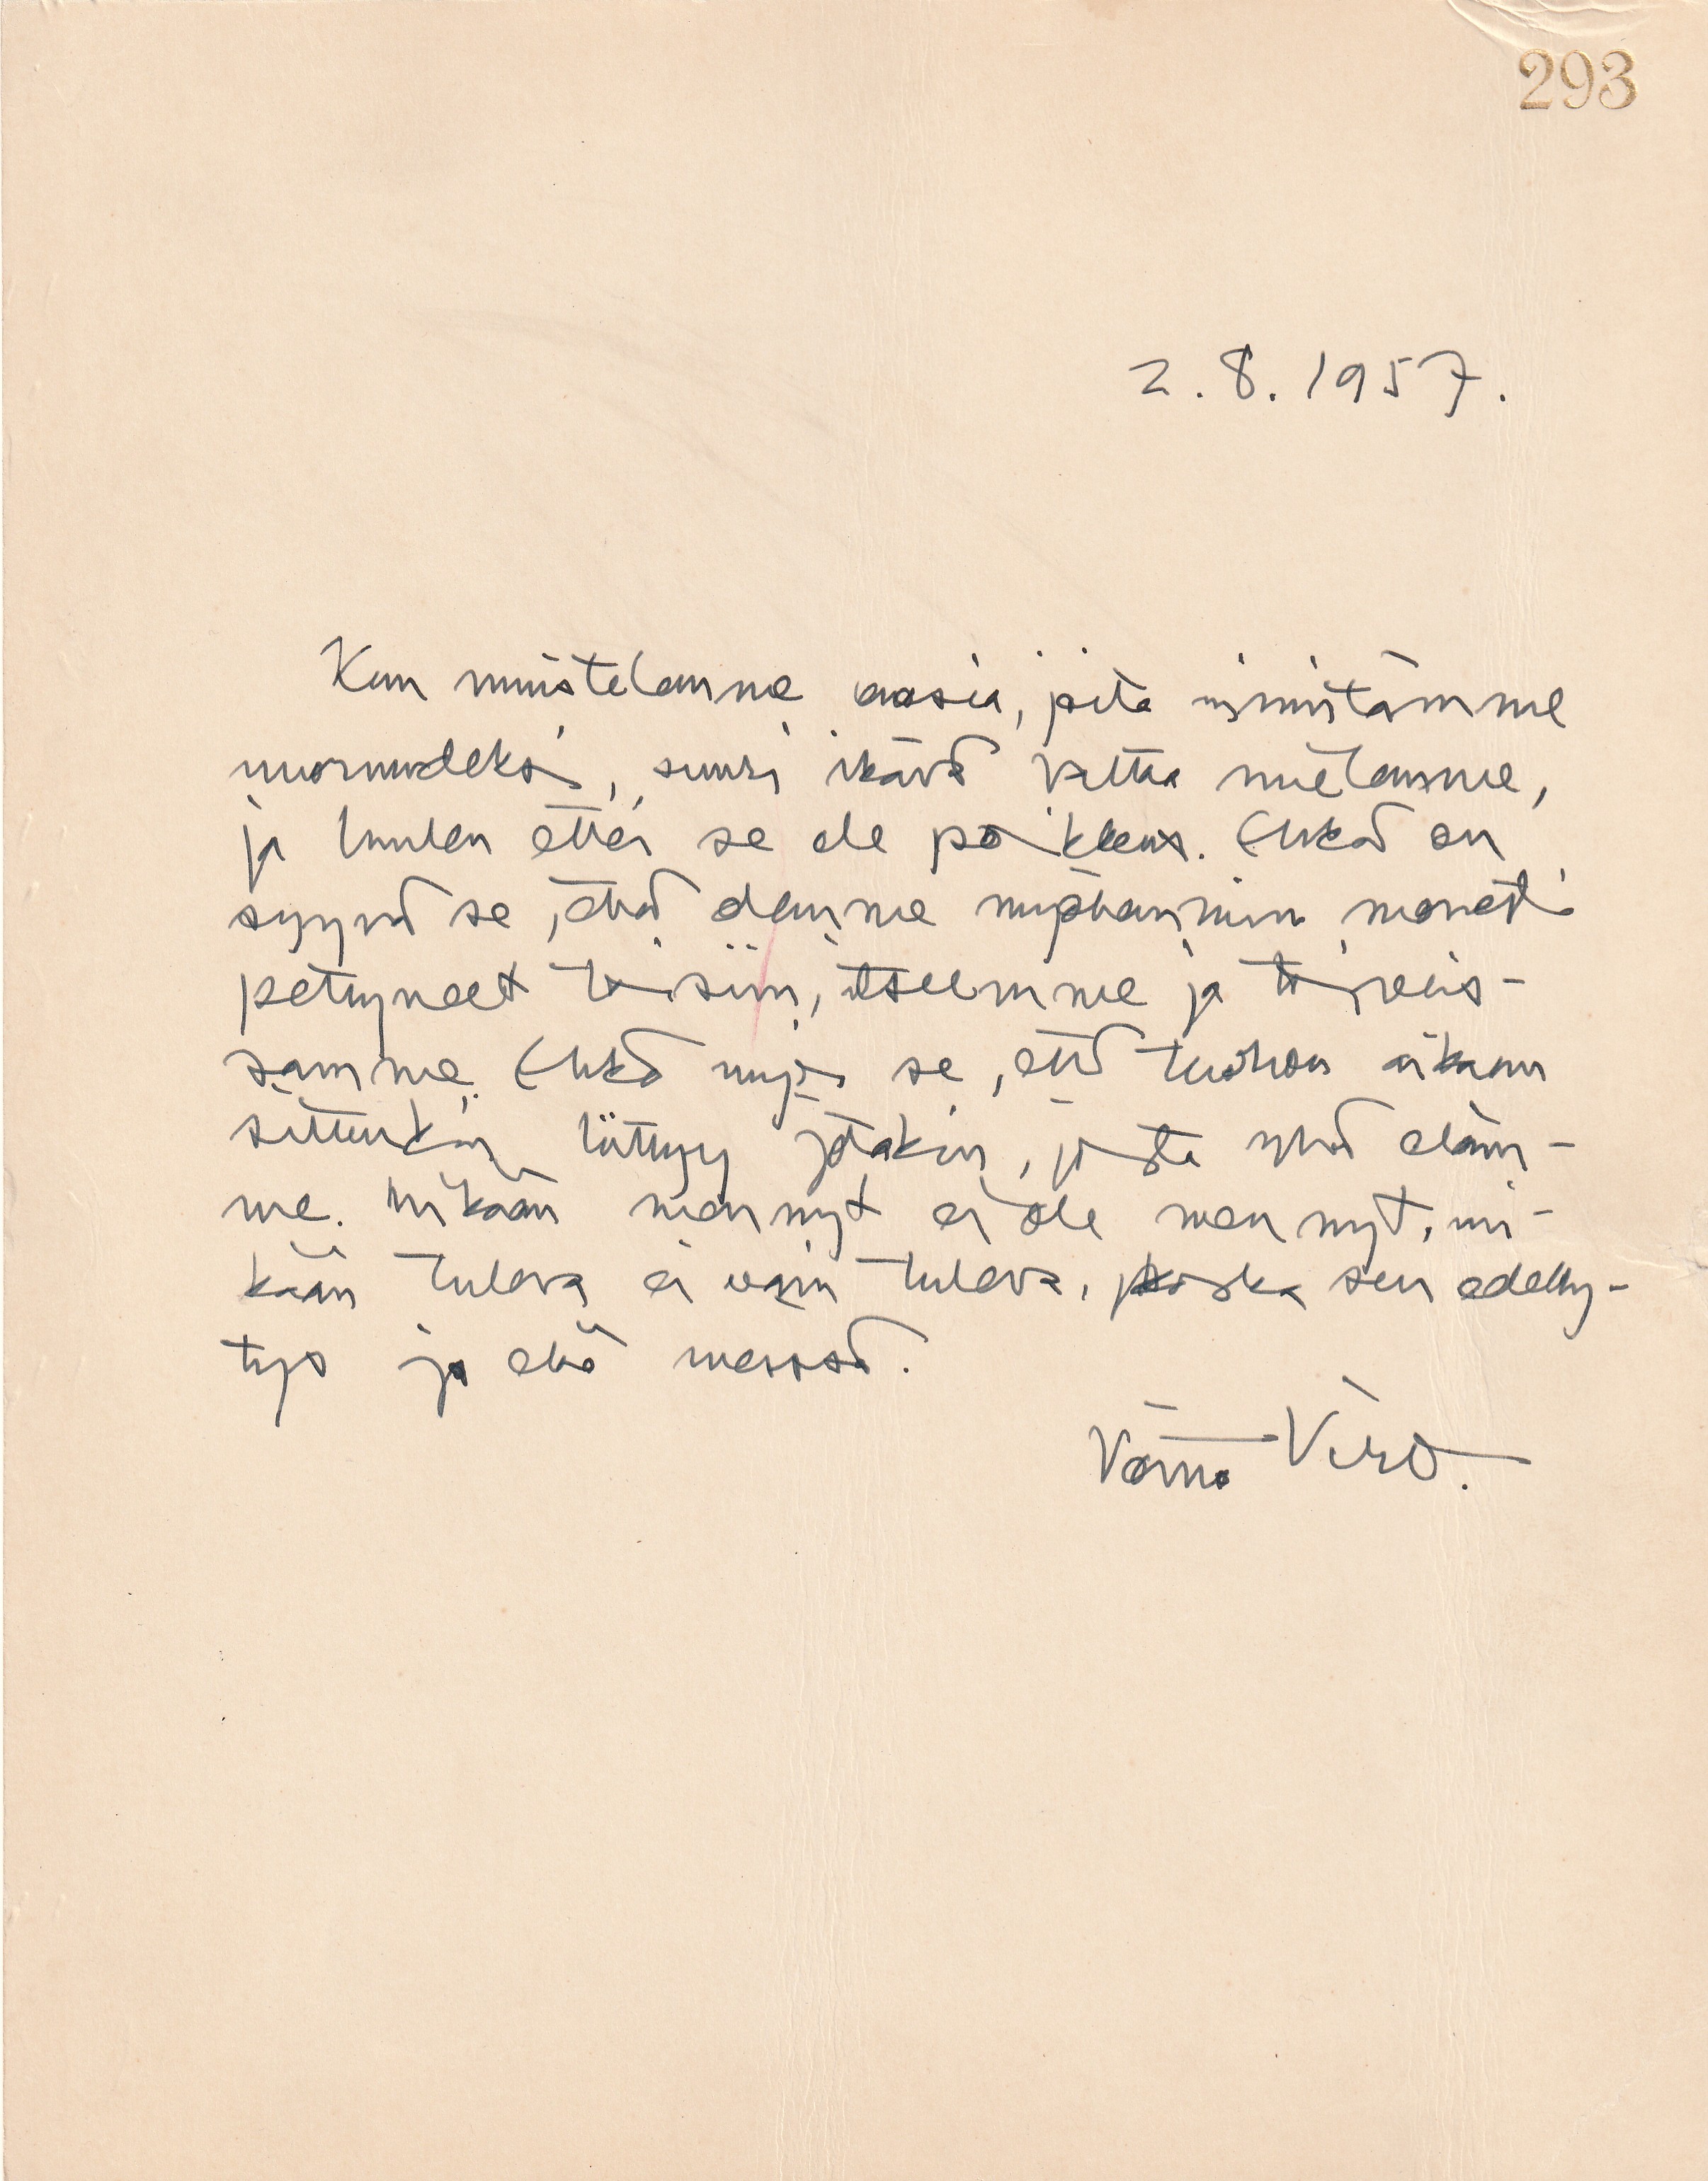 293
2.8.1957.
Kun muistelemme aikoja, joita nimitämme
nuoruudeksi, suuri ikävä valtaa mielemme,
ja luulen ettei se ole poikkeus. Ehkä on
syynä se, että olemme myöhemmin monesti
pettyneet toisiin, itseemme ja toiveis-
samme. Ehkä myös se, että tuohon aikaan
sittenkin liittyy jotakin, josta yhä eläm-
me. Mikään mennyt ei ole mennyt, mi-
kään tuleva ei vain tuleva, koska sen edelly-
tys jo elää meissä.
Väinö